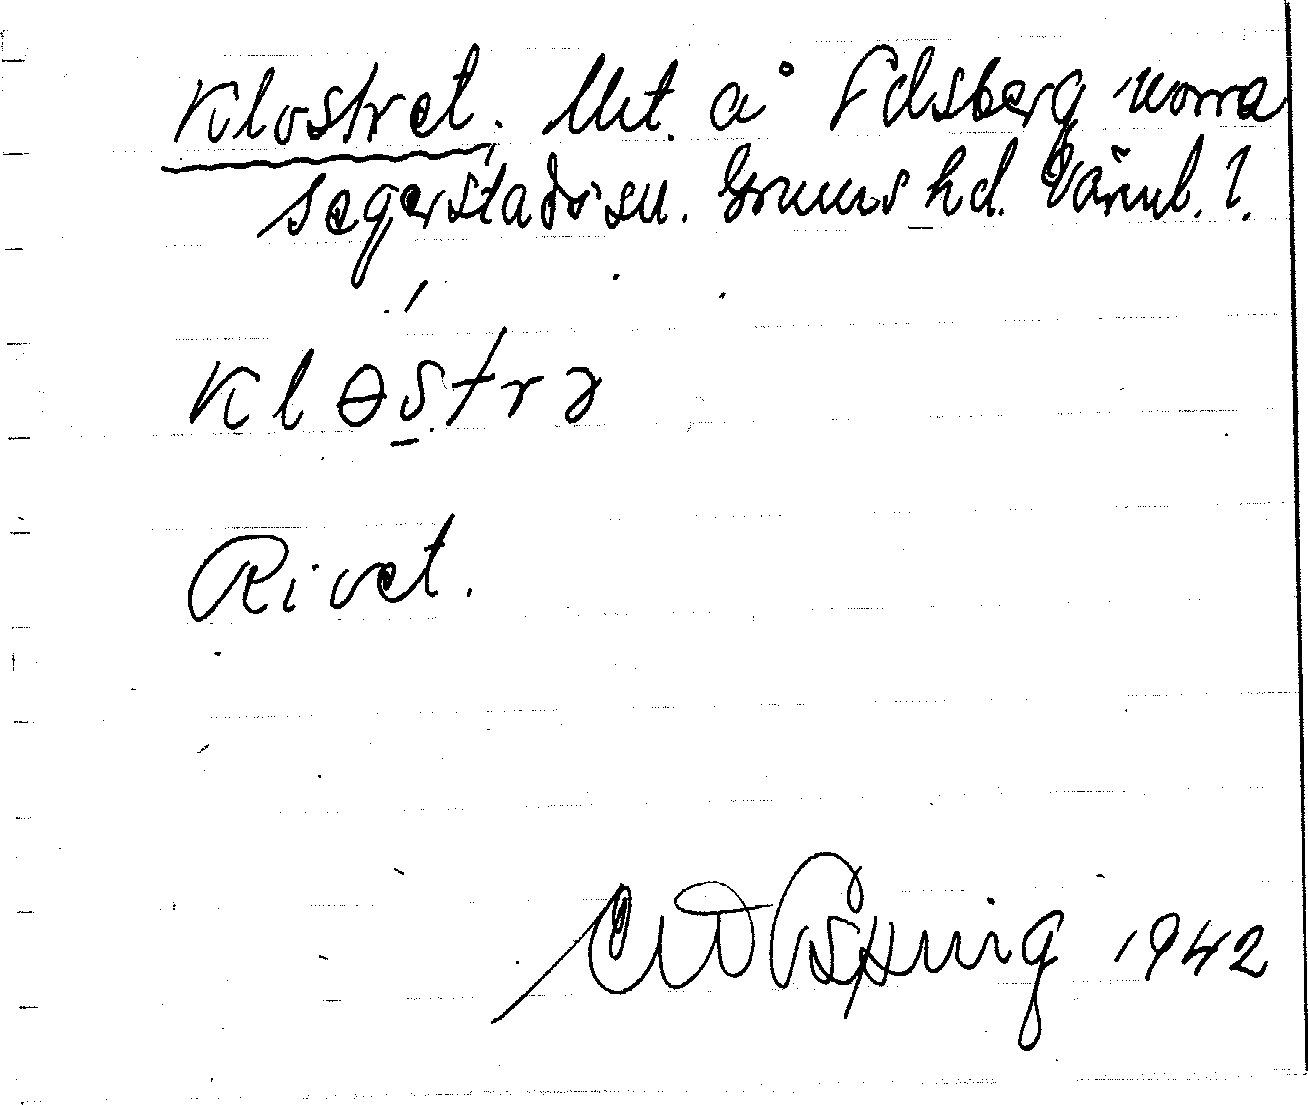 Klostret. Lht. å Edsberg norra
Segerstads sn. Grums hd. Värml. l.
Klɵstrə
Rivet.
1942